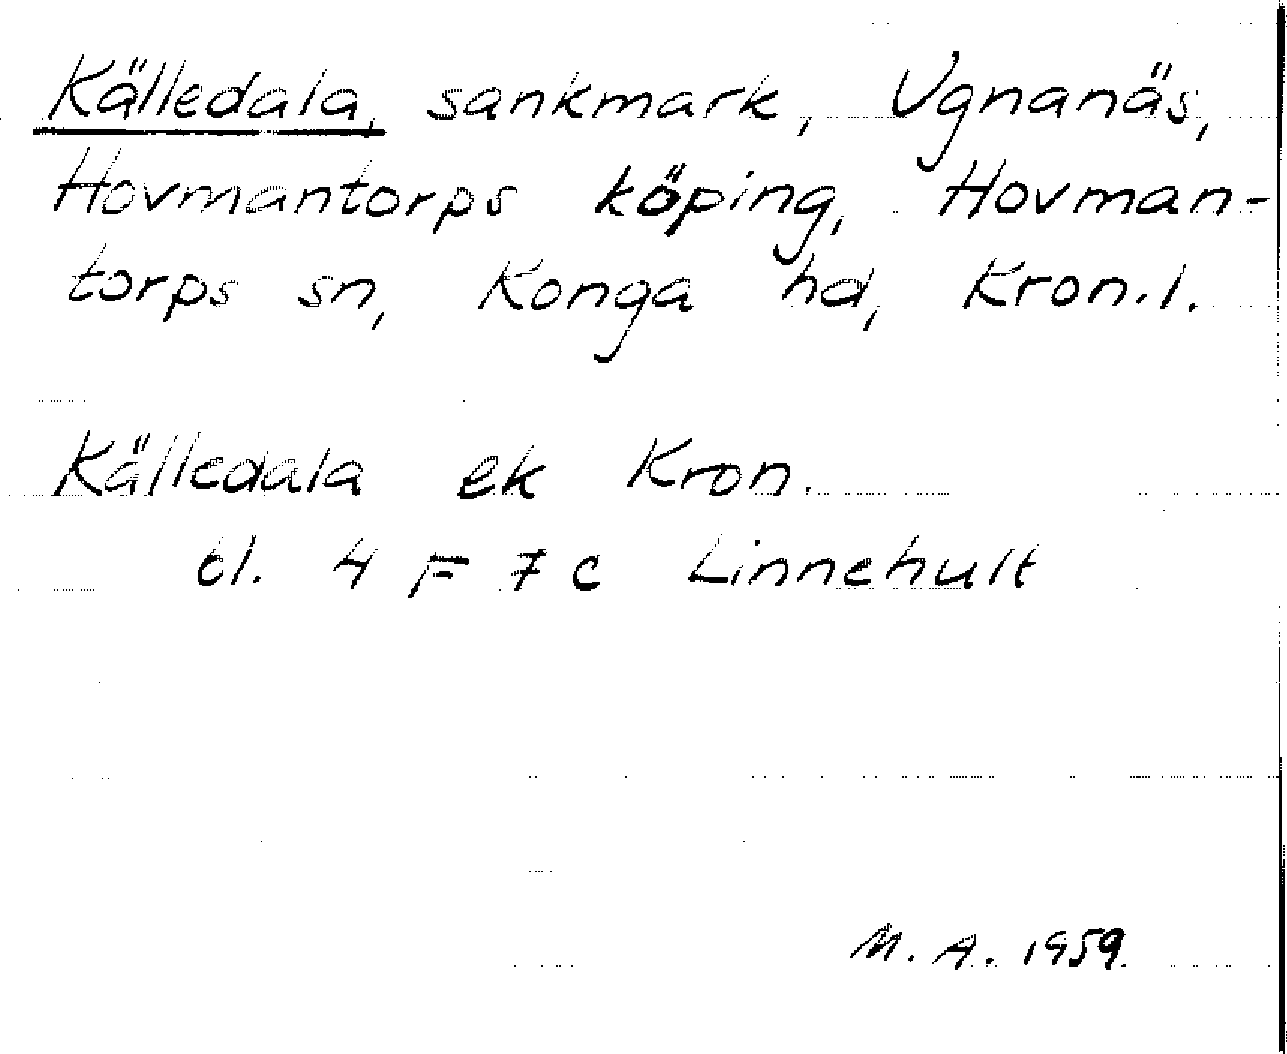 Källedala, sankmark, Ugnanäs,
Hovmantorps köping, Hovman-
torps sn, Konga hd, Kron.l.
Källedala ek Kron.
bl. 4 F 7 c Linnehult
M. A. 1959.